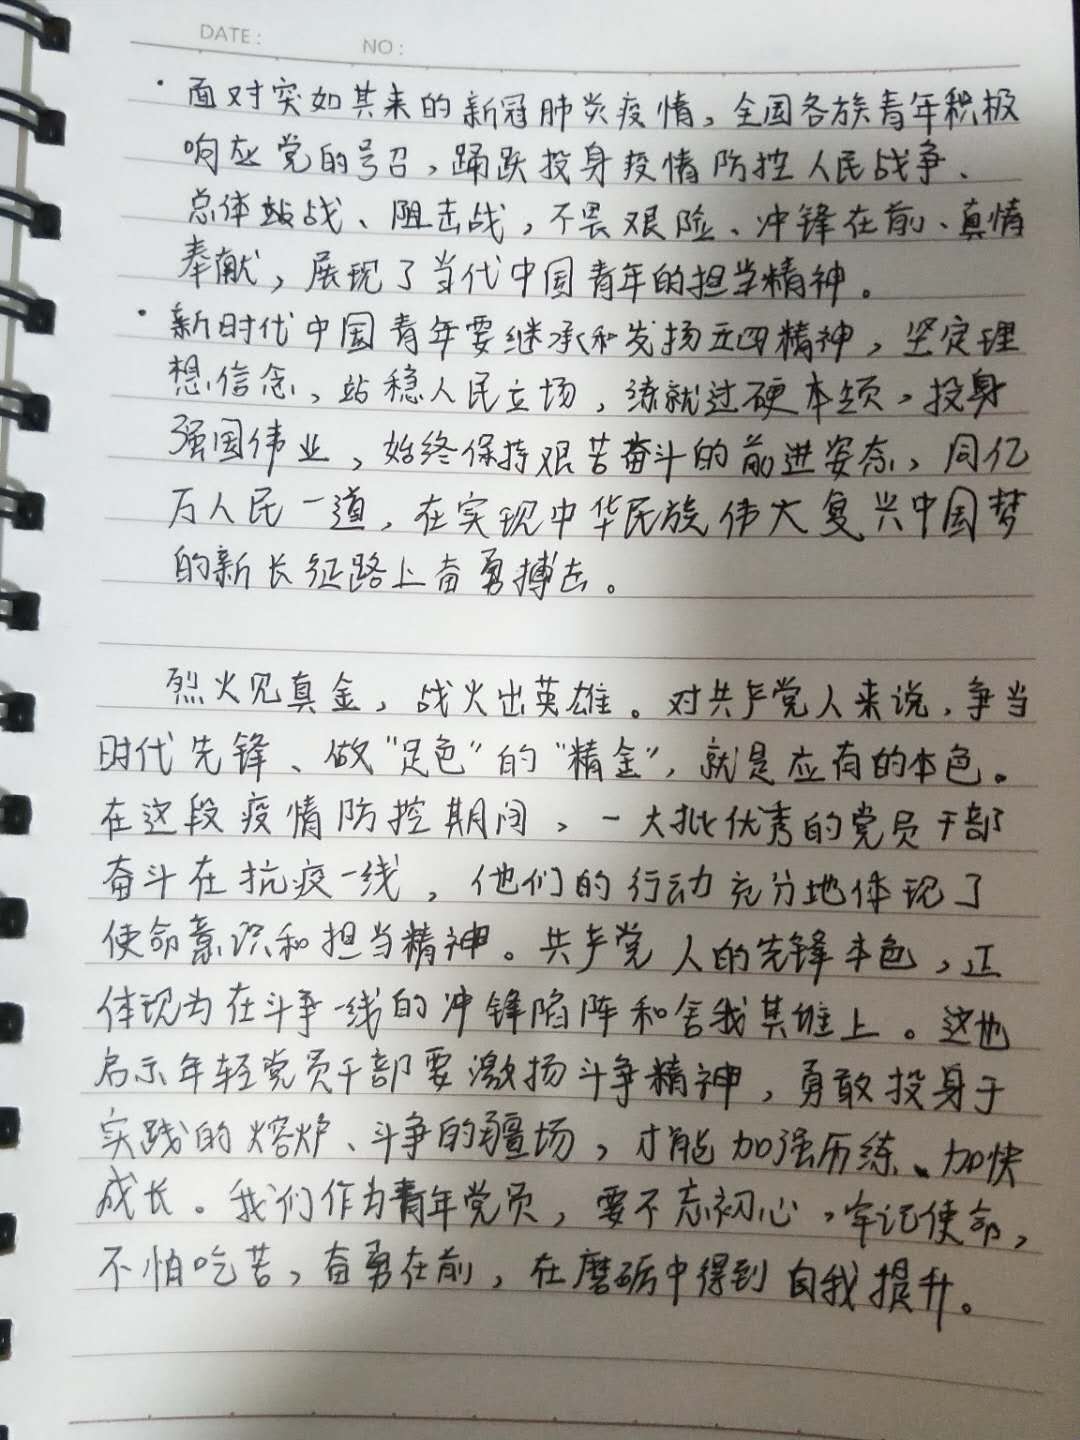 DATE: NO:
·面对突如其来的新冠肺炎疫情，全国各族青年积极
响应党的号召，踊跃投身疫情防控人民战争、
总体战、阻击战，不畏艰险、冲锋在前、真情
奉献，展现了当代中国青年的担当精神。
·新时代中国青年要继承和发扬五四精神，坚定理
想信念，站稳人民立场，练就过硬本领，投身
强国伟业，始终保持艰苦奋斗的前进姿态，同亿
万人民一道，在实现中华民族伟大复兴中国梦
的新长征路上奋勇搏击。
烈火见真金，战火出英雄。对共产党人来说，争当
时代先锋、做“足色”的“精金”，就是应有的本色。
在这段疫情防控期间，一大批优秀的党员干部
奋斗在抗疫一线，他们的行动充分地体现了
使命意识和担当精神。共产党人的先锋本色，正
体现为在斗争一线的冲锋陷阵和舍我其谁上。这也
启示年轻党员干部要激扬斗争精神，勇敢投身于
实践的熔炉、斗争的疆场，才能加强历练、加快
成长。我们作为青年党员，要不忘初心，牢记使命，
不怕吃苦，奋勇在前，在磨砺中得到自我提升。